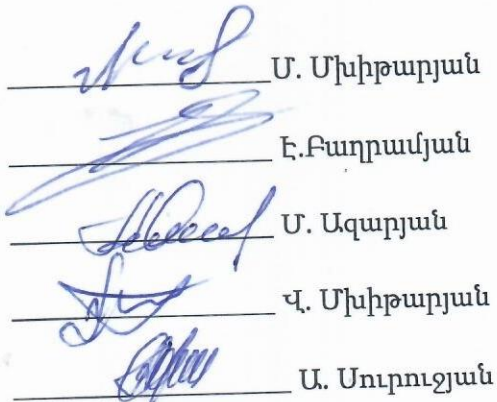 Մ. Մխիթարյան
Է.Բաղրամյան
Մ. Ազարյան
Վ. Մխիթարյան
Ա. Սուրուջյան